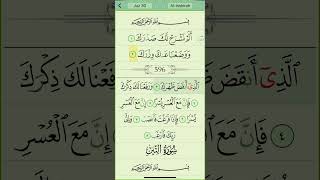 Juz 30 Al-Inshirah
بِسْمِ ٱللَّهِ ٱلرَّحْمَٰنِ ٱلرَّحِيمِ
أَلَمْ نَشْرَحْ لَكَ صَدْرَكَ ١
وَوَضَعْنَا عَنكَ وِزْرَكَ ٢
596
ٱلَّذِىٓ أَنقَضَ ظَهْرَكَ ٣ وَرَفَعْنَا لَكَ ذِكْرَكَ
٤ فَإِنَّ مَعَ ٱلْعُسْرِ يُسْرًا ٥ إِنَّ مَعَ ٱلْعُسْرِ
يُسْرًا ٦ فَإِذَا فَرَغْتَ فَٱنصَبْ ٧ وَإِلَىٰ
رَبِّكَ فَٱرْغَب ٨
سُورَةُ ٱلتِّينِ
بِسْمِ ٱللَّهِ ٱلرَّحْمَٰنِ ٱلرَّحِيمِ